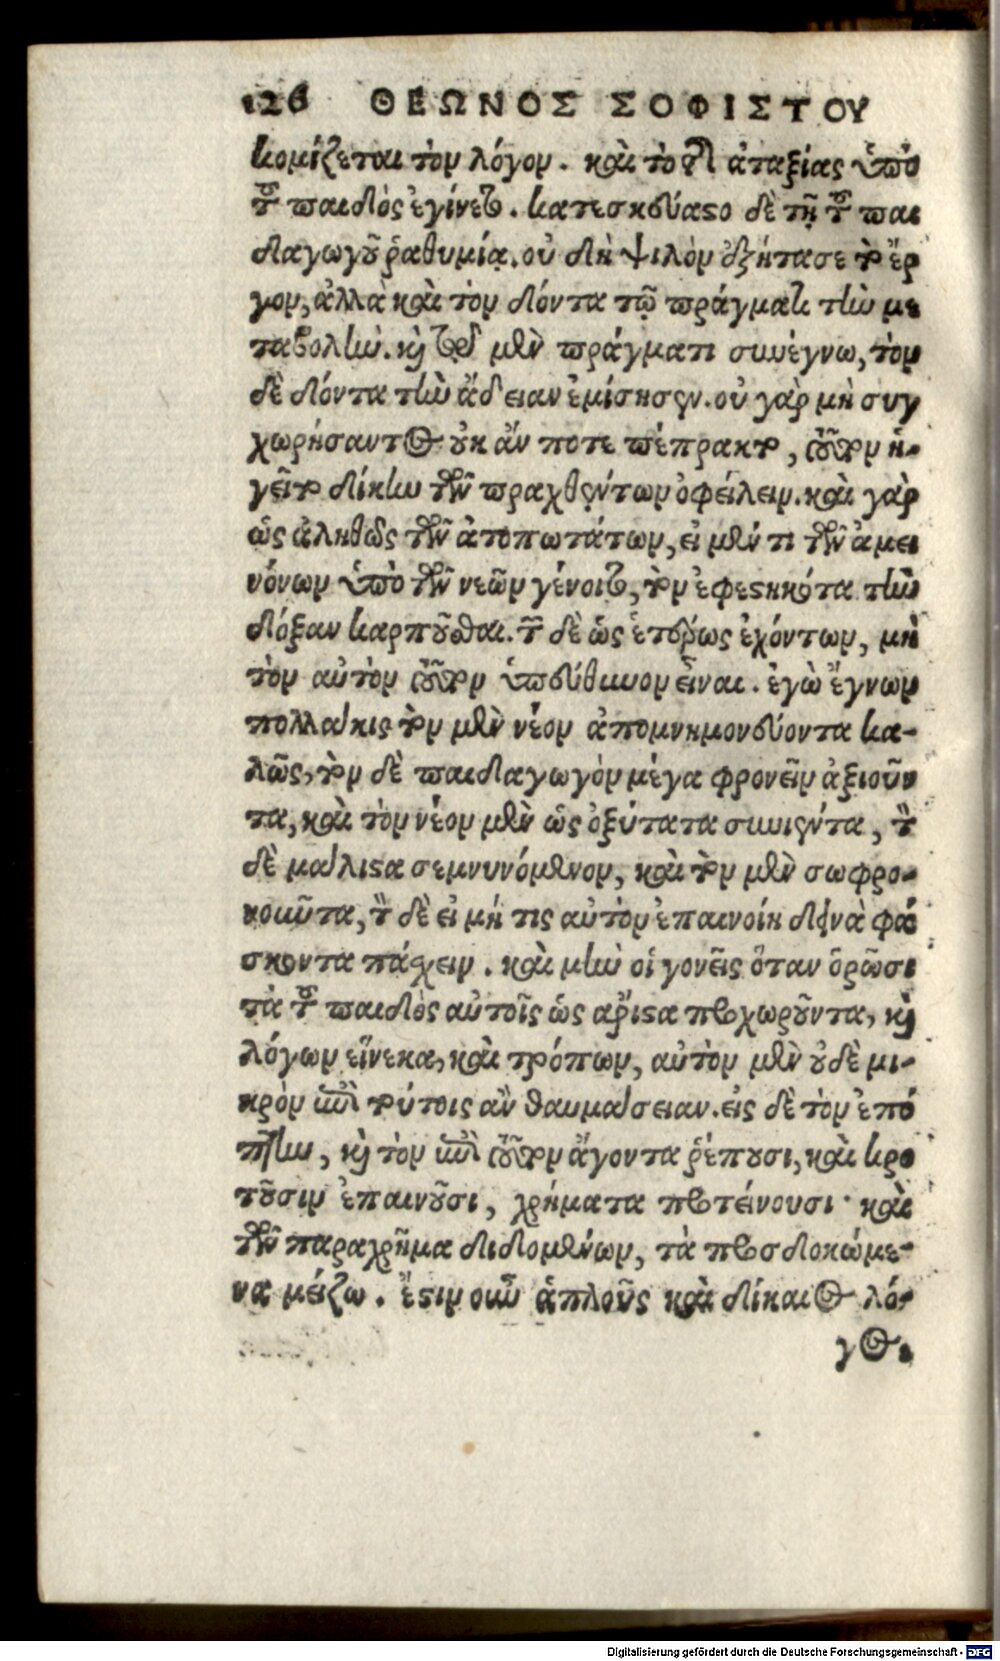 126 ΘΕΩΝΟΣ ΣΟΦΙΣΤΟΥ
κομίζεται τὸν λόγον. καὶ τὸ τῆς ἀταξίας ὑπὸ
τοῦ παιδὸς ἐγίνετο. κατεσκεύαστο δὲ τῇ τοῦ παι
δαγωγοῦ ῥαθυμίᾳ. οὐ δὴ ψιλὸν ἐξήτασε τὸ ἔρ
γον, ἀλλὰ καὶ τὸν δόντα τῷ πράγματι τὴν με
ταβολήν. καὶ τῷ μὲν πράγματι συνέγνω, τὸν
δὲ δόντα τὴν ἄδειαν ἐμίσησεν. οὐ γὰρ μὴ συγ
χωρήσαντος οὐκ ἄν ποτε πέπρακτο, τοῦτον ἡ-
γεῖτο δίκην τῶν πραχθέντων ὀφείλειν. καὶ γὰρ
ὡς ἀληθῶς τῶν ἀτοπωτάτων, εἰ μέν τι τῶν ἀμει
νόνων ὑπὸ τῶν νεῶν γένοιτο, τὸν ἐφεστηκότα τὴν
δόξαν καρποῦσθαι. τῶν δὲ ὡς ἑτέρως ἐχόντων, μὴ
τὸν αὐτὸν τοῦτον ὑπεύθυνον εἶναι. ἐγὼ ἔγνων
πολλάκις τὸν μὲν νέον ἀπομνημονεύοντα κα-
λῶς, τὸν δὲ παιδαγωγὸν μέγα φρονεῖν ἀξιοῦν
τα, καὶ τὸν νέον μὲν ὡς ὀξύτατα συνιέντα, τὸν
δὲ μάλιστα σεμνυνόμενον, καὶ τὸν μὲν σωφρο-
νοῦντα, τὸν δὲ εἰ μή τις αὐτὸν ἐπαινοίη δεινὰ φά
σκοντα πάσχειν. καὶ μὴν οἱ γονεῖς ὅταν ὁρῶσι
τὰ τοῦ παιδὸς αὐτοῖς ὡς ἄριστα προχωροῦντα, καὶ
λόγων εἵνεκα, καὶ τρόπων, αὐτὸν μὲν οὐδὲ μι-
κρὸν ἐπὶ τούτοις ἂν θαυμάσειαν. εἰς δὲ τὸν ἐπό
πτην, καὶ τὸν ἐπὶ τοῦτον ἄγοντα ῥέπουσι, καὶ κρο
τοῦσιν ἐπαινοῦσι, χρήματα προτείνουσι· καὶ
τῶν παραχρῆμα διδομένων, τὰ προσδοκώμε-
να μείζω. ἔστιν οὖν ἁπλοῦς καὶ δίκαιος λό-
γος.
Digitalisierung gefördert durch die Deutsche Forschungsgemeinschaft - DFG